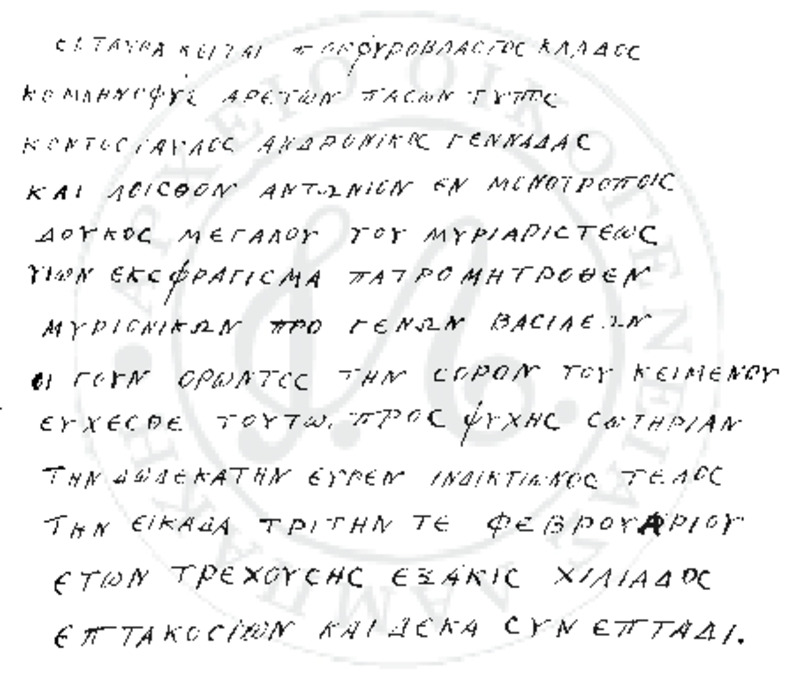 ΕΝΤΑΥΘΑ ΚΕΙΤΑΙ ΠΟΡΦΥΡΟΒΛΑΣΤΟΣ ΚΛΑΔΟC
ΚΟΜΝΗΝΟΦΥΗC ΑΡΕΤΩΝ ΠΑCΩΝ ΤΥΠΟC
ΚΟΝΤΟCΤΑΥΛΟC ΑΝΔΡΟΝΙΚΟC ΓΕΝΝΑΔΑC
ΚΑΙ ΛΟΙCΘΟΝ ΑΝΤΩΝΙΟΝ ΕΝ ΜΟΝΟΤΡΟΠΟΙC
ΔΟΥΚΟC ΜΕΓΑΛΟΥ ΤΟΥ ΜΥΡΙΑΡΙCΤΕΩC
ΥΙΩΝ ΕΚCΦΡΑΓΙCΜΑ ΠΑΤΡΟΜΗΤΡΟΘΕΝ
ΜΥΡΙΟΝΙΚΩΝ ΠΡΟ ΓΕΝΩΝ ΒΑCΙΛΕΩΝ
ΟΙ ΓΟΥΝ ΟΡΩΝΤΕC ΤΗΝ CΟΡΟΝ ΤΟΥ ΚΕΙΜΕΝΟΥ
ΕΥΧΕCΘΕ ΤΟΥΤΩ. ΠΡΟC ΨΥΧΗC CΩΤΗΡΙΑΝ
ΤΗΝ ΔΩΔΕΚΑΤΗΝ ΕΥΡΕΝ ΙΝΔΙΚΤΙΩΝΟC ΤΕΛΟC
ΤΗΝ ΕΙΚΑΔΑ ΤΡΙΤΗΝ ΤΕ ΦΕΒΡΟΥΑΡΙΟΥ
ΕΤΩΝ ΤΡΕΧΟΥCΗC ΕΞΑΚΙC ΧΙΛΙΑΔΟC
ΕΠΤΑΚΟCΙΩΝ ΚΑΙ ΔΕΚΑ CΥΝ ΕΠΤΑΔΙ.
ΑΡΧΕΙΟ ΟΙΚΟΓΕΝΕΙΑΣ ΛΑΜΠΑΚΗ